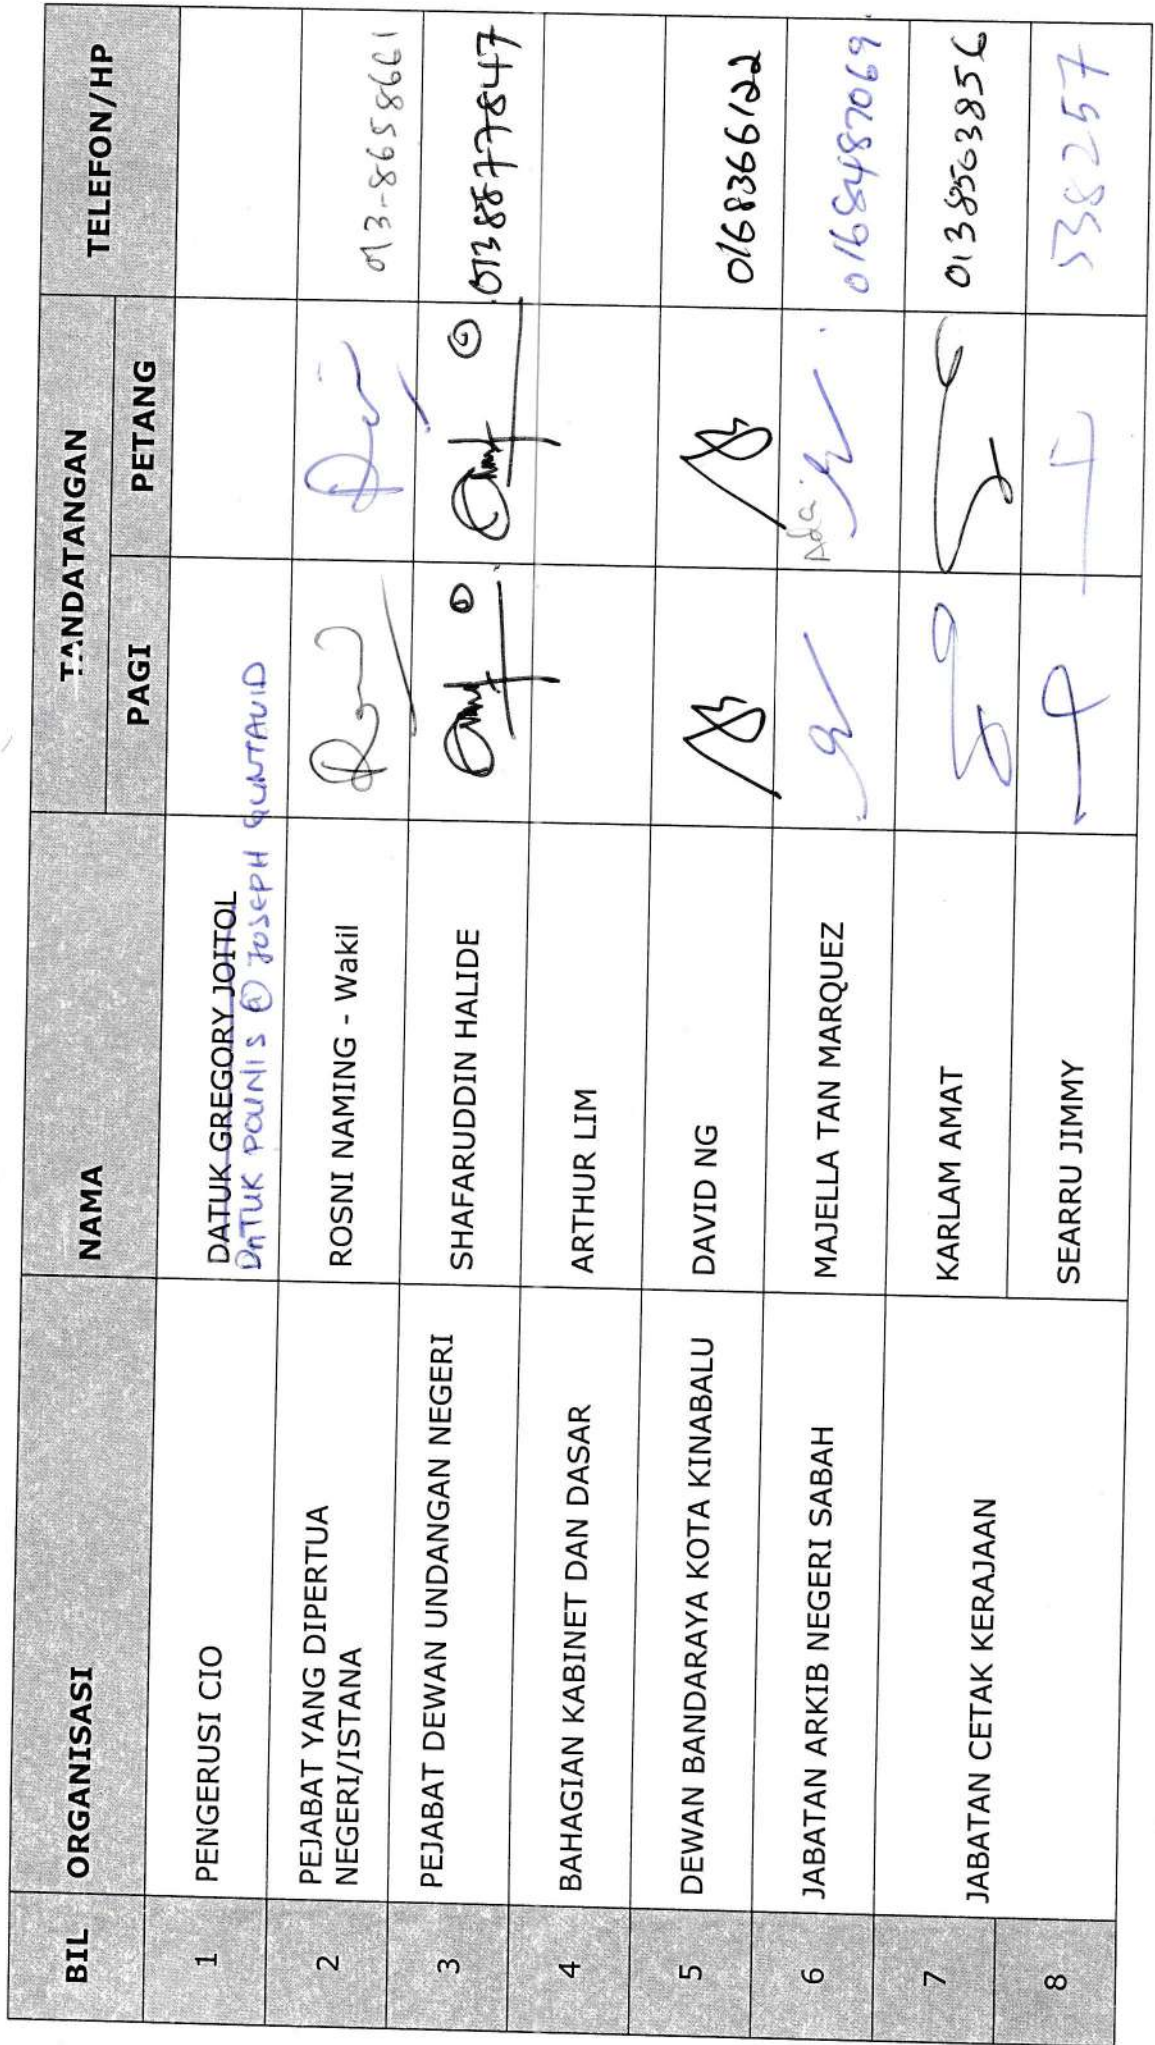 BIL ORGANISASI NAMA TANDATANGAN TELEFON/HP
PAGI PETANG
1 PENGERUSI CIO DATUK GREGORY JOITOL
DATUK POUNIS @ JOSEPH GUNTAVID
2 PEJABAT YANG DIPERTUA ROSNI NAMING - Wakil 013-8658661
NEGERI/ISTANA
3 PEJABAT DEWAN UNDANGAN NEGERI SHAFARUDDIN HALIDE 0138877847
4 BAHAGIAN KABINET DAN DASAR ARTHUR LIM
5 DEWAN BANDARAYA KOTA KINABALU DAVID NG 0168366122
6 JABATAN ARKIB NEGERI SABAH MAJELLA TAN MARQUEZ Ada 0168487069
7 JABATAN CETAK KERAJAAN KARLAM AMAT 0138563856
8 SEARRU JIMMY 538257